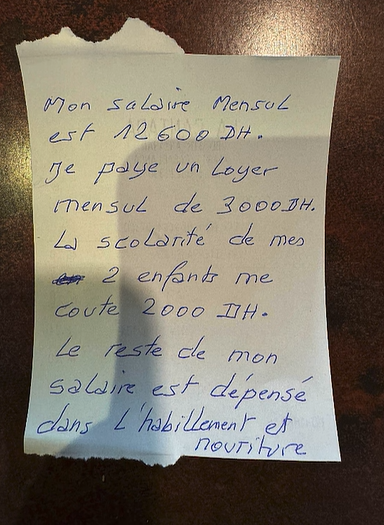 Mon salaire Mensul
est 12600 DH.
Je paye un Loyer
mensul de 3000DH.
La scolarité de mes
2 enfants me
coute 2000 DH.
Le reste de mon
salaire est dépensé
dans L'habillement et
nouriture